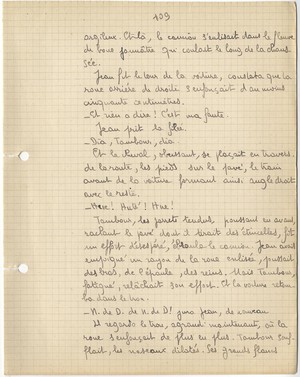 109
argileux. Et là, le camion s'enlisait dans le fleuve
de boue jaunâtre qui coulait le long de la chaus-
sée.
Jean fit le tour de la voiture, constata que la
roue arrière de droite s'enfonçait d'au moins
cinquante centimètres.
— Et rien a dire ! C'est ma faute.
Jean prit la
— Dia, Tambour, dia.
Et le cheval, obéissant, se plaçait en travers
de la route, les pieds sur le pavé, le train
avant de la voiture formant ainsi angle droit
avec le reste.
— Hue ! Hue ! Hue !
Tambour, les jarrets tendus, poussant en avant,
raclant le pavé dont il tirait des étincelles, fit
un effort désespéré, ébranla le camion. Jean avait
empoigné un rayon de la roue enlisée, poussait
des bras, de l'épaule, des reins. Mais Tambour,
fatigué, relâchait son effort. Et la voiture retom-
ba dans le trou.
— N. de D. de N. de D ! jura Jean, de nouveau
Il regarda le trou, agrandi maintenant, où la
roue s'enfonçait de plus en plus. Tambour souf-
flait, les naseaux dilatés. Ses grands flancs